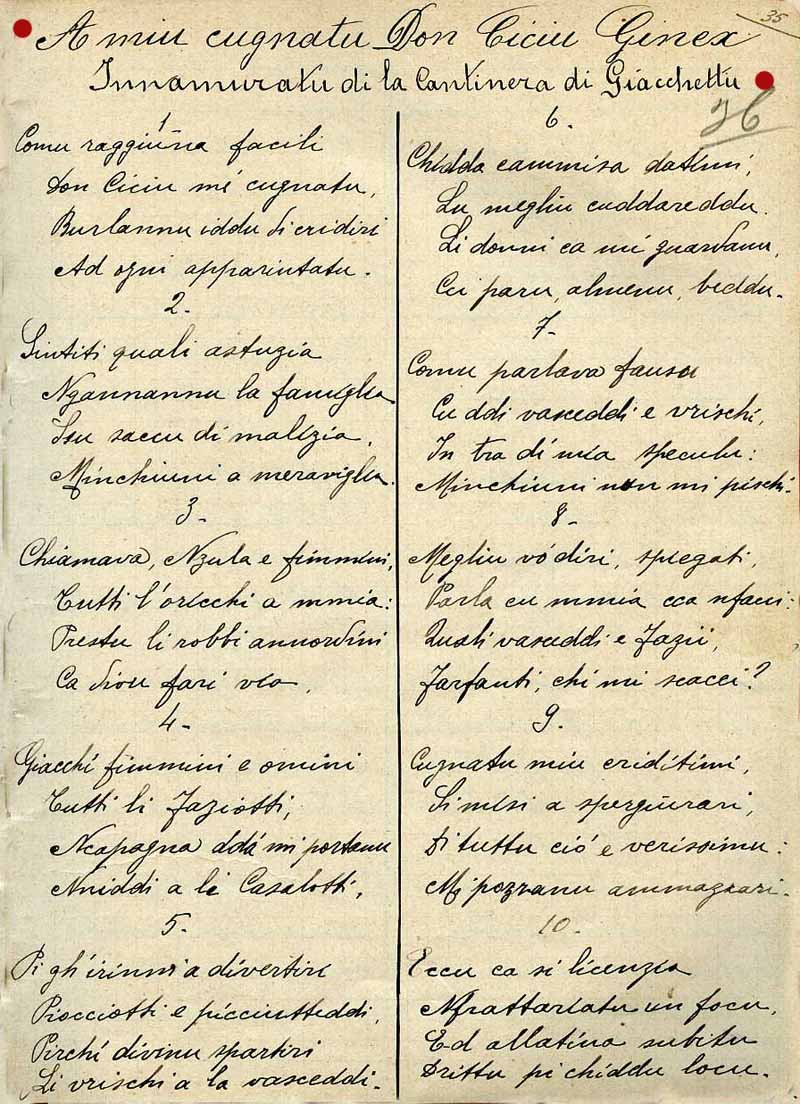 35
A miu cugnatu Don Ciciu Ginex
Innamuratu di la Cantinera di Giacchettu
1
Comu raggiuna facili
Don Ciciu mé cugnatu,
Burlannu iddu si cridiri
Ad ogni apparintatu.
2.
Sintiti quali astuzia
Ngannannu la famiglia
Isu saccu di malizia,
Minchiuni a meraviglia.
3.
Chiamava, Nzula e fimmini,
Tutti l'oricchi a mmia:
Prestu li robbi annordini
Ca divu fari via,
4.
Giacchí fimmini e omini
Tutti li Jaziotti,
Ncapagna ddá mi portanu
Aniddi a li Casalotti,
5.
Pi gh'irinni a divertiri
Picciotti e picciutteddi,
Pirchí divinu spartiri
Li vrischi a la vasceddi.
6.
Chidda cammisa datimi,
Lu megliu cuddareddu.
Li donni ca mi guardanu,
Cci paru, almenu, beddu.
7.
Comu parlava fausu
Cu ddi vasceddi e vrischi,
In tra di mia speculu:
Minchiuni nun mi pischi.
8.
Megliu vó diri, spiegati,
Parla cu mmia cca nfacci:
Quali vasceddi e Jazii,
Farfanti, chi mi scacci?
9.
Cugnatu miu criditimi,
Si misi a spergiurari,
Di tuttu ció é verissimu:
Mi pozzanu ammazzari.
10.
Eccu ca si licenzia
Nfrattariatu un focu,
Ed allatina subitu
Drittu pi chiddu locu.